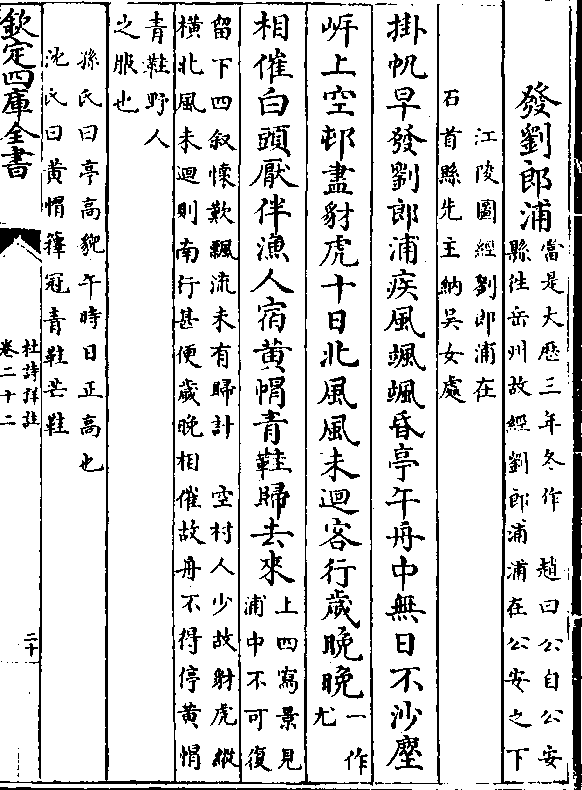 發劉郎浦當是大歷三年冬作　趙曰公自公安
縣徃岳州故經劉郎浦浦在公安之下
江陵圖經劉郎浦在
石首縣先主納吳女處
掛帆早發劉郎浦疾風颯颯昏亭午舟中無日不沙塵
岍上空邨盡豺虎十日北風風未迴客行歲晚晚一作
尤
相催白頭厭伴漁人宿黄帽青鞋歸去來上四寫景見
浦中不可復
留下四叙懐歎飄流未有歸計　空村人少故射虎縱
横北風未迴則南行甚便歲晚相催故舟不得停黄帽
青鞋野人
之服也
孫氏曰亭高貌午時日正高也
沈氏曰黄帽籜冠青鞋芒鞋
欽定四庫全書
杜詩詳註
卷二十二
二十